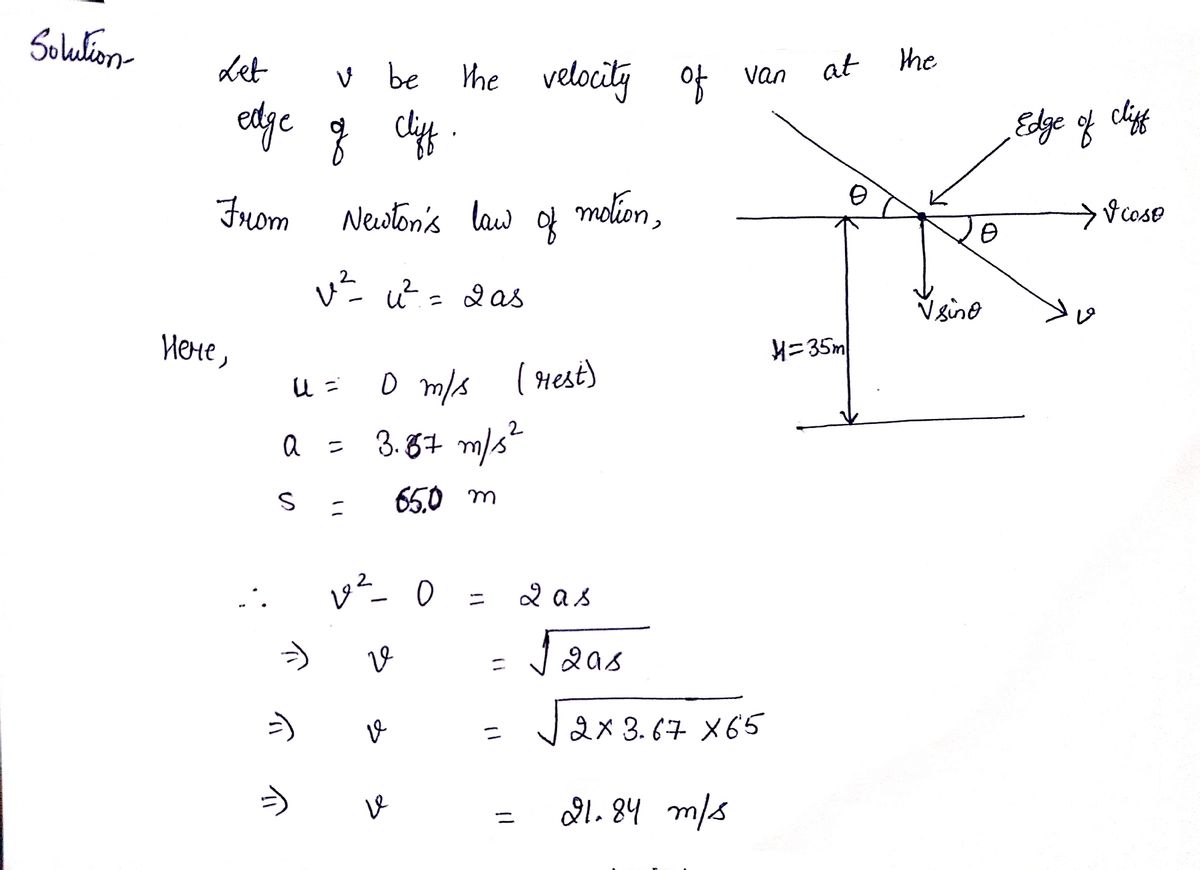 Solution-
Let v be the velocity of van at the
edge of cliff.
From Newton's law of motion,
v² - u² = 2as
Here,
u = 0 m/s (rest)
a = 3.67 m/s²
s = 65.0 m
∴ v² - 0 = 2as
⇒ v = √2as
⇒ v = √2×3.67×65
⇒ v = 21.84 m/s
Edge of cliff
θ
v cosθ
θ
V sinθ
v
H=35m